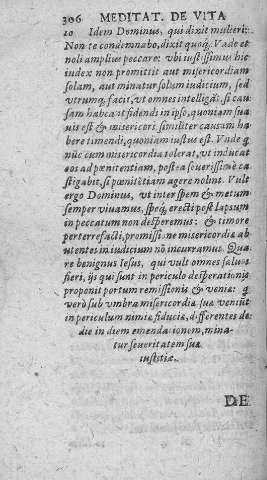 306 MEDITAT. DE VITA
10 Idem Dominus, qui dixit mulieri:
Non te condemnabo, dixit quoq;, Vade et
noli amplius peccare: vbi iustissimus hic
iudex non promittit aut misericordiam
solam, aut minatur solam iudicium, sed
vtrumq; facit, vt omnes intelligãt, si cau-
sam habeãt fidendi in ipso, quoniam sua
uis est & misericors: similiter causam ha-
bere timendi, quoniam iustus est. Vade q
nũc cum misericordia tolerat, vt inducat
eos ad pœnitentiam, postea seuerissimè ca-
stigabit, si pœnitẽtiam agere nolint. Vult
ergo Dominus, vt inter spem & metum
semper viuamus, speq; erecti post lapsum
in peccatum non desperemus: & timore
perterrefacti, promissi: ne misericordia ab-
utentes in iudicium nõ incurramus. Qua-
re benignus Iesus, qui vult omnes saluos
fieri, ijs qui sunt in periculo desperationis
proponit portum remissionis & veniæ: q
verò sub vmbra misericordiæ suæ veniũt
in periculum nimiæ fiduciæ, differentes de
die in diem emendationem, mina-
tur seueritatem suæ
iustitiæ.
DE